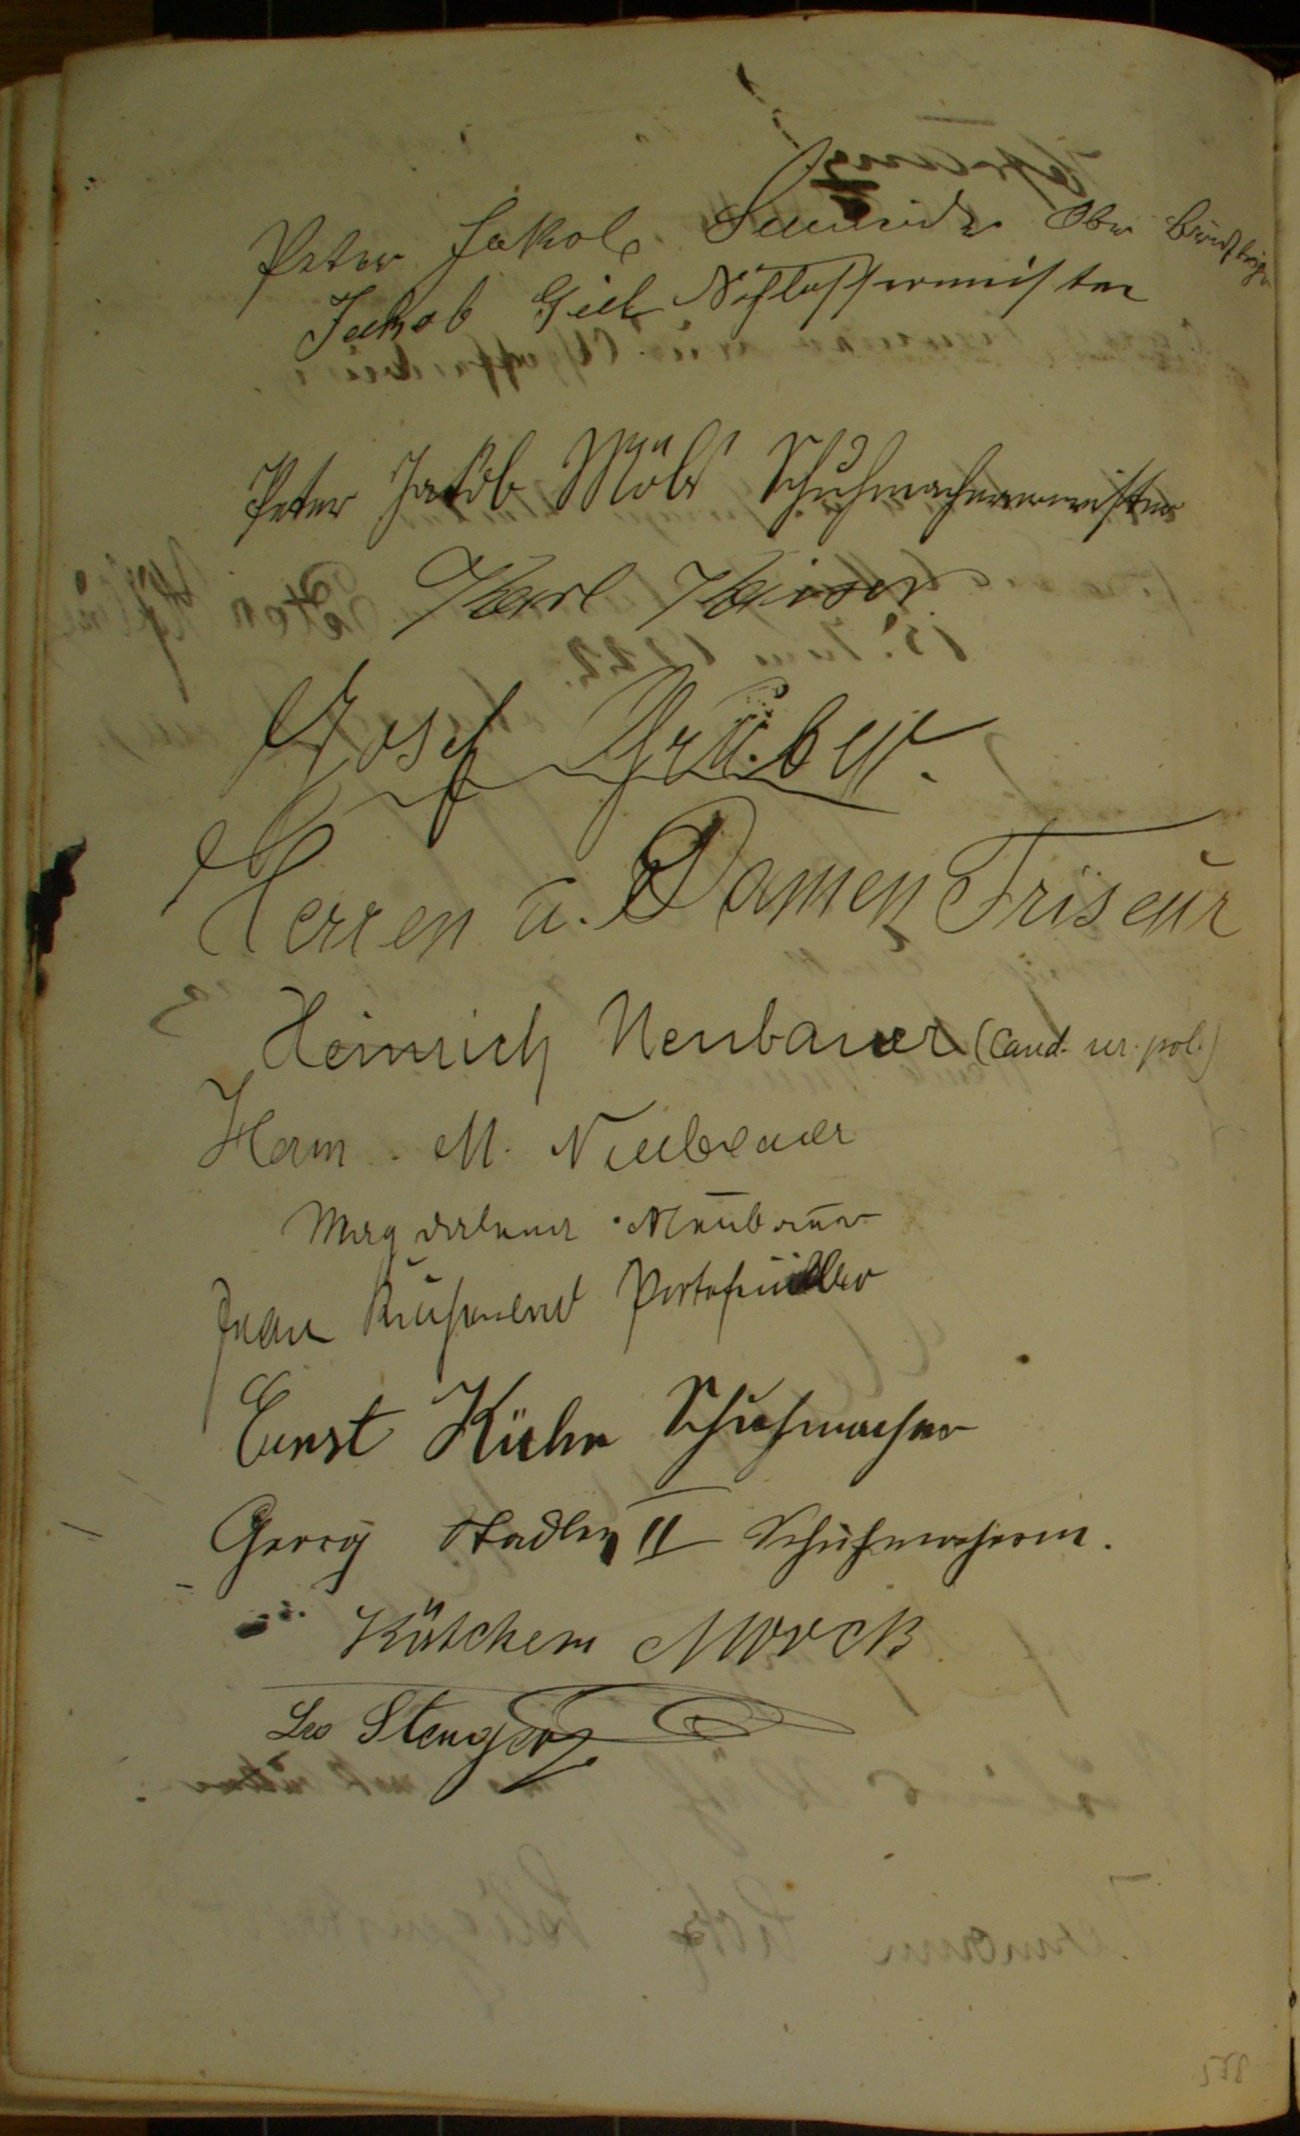 Peter Jakob Ober
Jakob Geil Schlossermeister
Peter Jakob Möbs Schuhmachermeister
Karl Kaiser
Josef Gruber.
Herren u. Damen Friseur
Heinrich Neubauer (Cand. rer. pol.)
Ham. M. Neubauer
Magdalena Neubauer
Jean Portefeuiller
Ernst Kühn Schuhmacher
Georg Stadler II Schuhmacherm.
Kätchem Morck
Leo Stenger